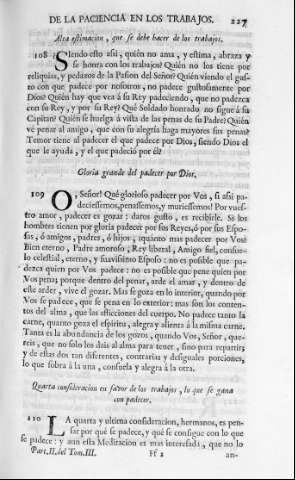 DE LA PACIENCIA EN LOS TRABAJOS. 227
Alta estimacion, que se debe hacer de los trabajos.
108 Siendo esto assi, quièn no ama, y estima, abraza y
se honra con los trabajos? Quièn no los tiene por
reliquias, y pedazos de la Passion del Señor? Quièn viendo el gus-
to con que padece por nosotros, no padece gustosamente por
Dios? Quièn hay que vea à su Rey padeciendo, que no padezca
con su Rey, y por su Rey? Què Soldado honrado no sigue à su
Capitan? Quièn se huelga à vista de las penas de su Padre? Quièn
vè penar al amigo, que con su alegria haga mayores sus penas?
Temor tiene al padecer el que padece por Dios, siendo Dios el
que le ayuda, y el que padeciò por èl?
Gloria grande del padecer por Dios.
109 O, Señor! Què glorioso padecer por Vos, si assi pa-
deciessemos, penassemos, y muriessemos! Por vues-
tro amor, padecer es gozar: daros gusto, es recibirle. Si los
hombres tienen por gloria padecer por sus Reyes, ò por sus Espo-
sas, ò amigos, padres, ò hijos; quànto mas padecer por Vos?
Bien eterno, Padre amoroso, Rey liberal, Amigo fiel, consue-
lo celestial, eterno, y suavissimo Esposo: no es possible que pa-
dezca quien por Vos padece: no es possible que pene quien por
Vos pena; porque dentro del penar, arde el amar, y dentro de
este arder, vive el gozar. Mas se goza en lo interior, quando por
Vos se padece, que se pena en lo exterior: mas son los conten-
tos del alma, que los aflicciones del cuerpo. No padece tanto la
carne, quanto goza el espiritu, alegra y alienta à la misma carne.
Tanta es la abundancia de los gozos, quando Vos, Señor, que-
reis, que no solo los dais al alma para tener, sino para repartir;
y de estas dos tan diferentes, contrarias y desiguales porciones,
lo que sobra à la una, consuela y alegra à la otra.
Quarta consideracion en favor de los trabajos, lo que se gana
con padecer.
110 LA quarta y ultima consideracion, hermanos, es pen-
sar por què se padece, y què se consigue con lo que
se padece: y aun esta Meditacion es mas interesada, que no lo
Part. II. del Tom. III. Ff 2 an-